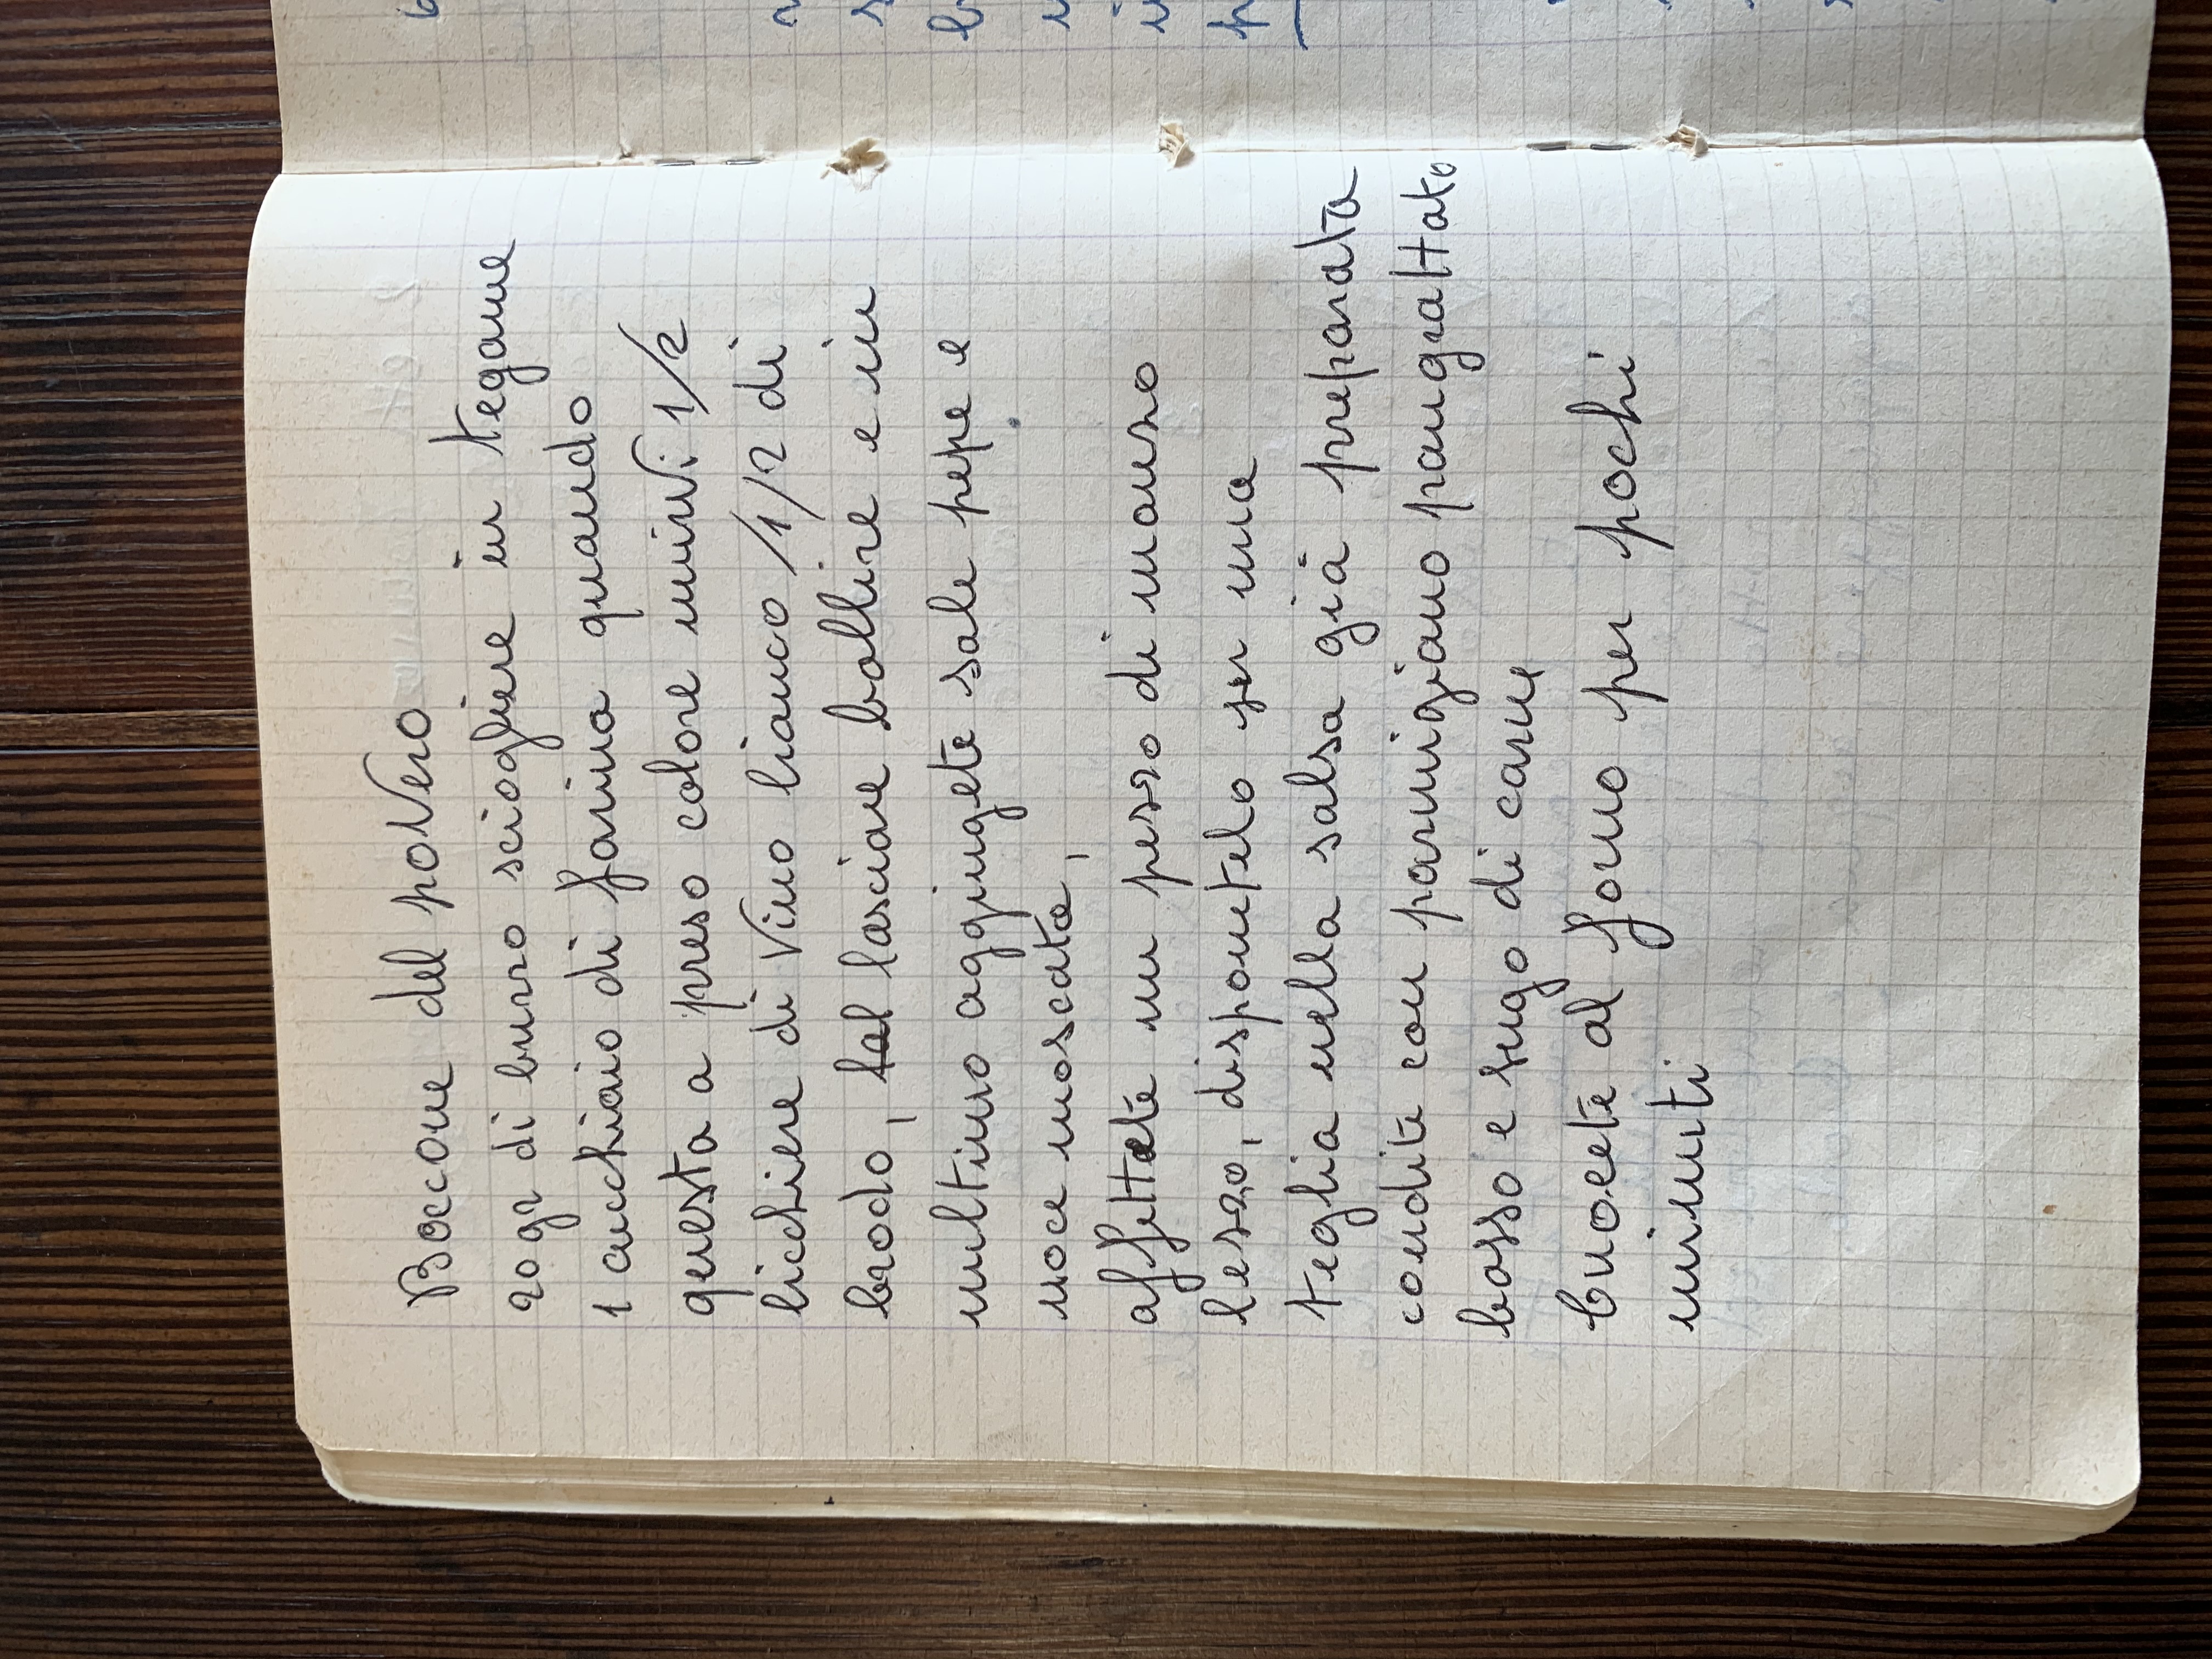 Boccone del poVero
20 gr di burro sciogliere in tegame
1 cucchiaio di farina quando
questa a preso colore unirVi 1/2
bicchiere di Vino bianco /1/2 di
brodo, lasciare bollire e in
ultimo aggiungete sale pepe e
noce moscata,
affettate un pezzo di manzo
lesso, disponetelo su una
teglia nella salsa già preparata
condite con parmigiano pangrattato
basso e sugo di carne
cuocete al forno per pochi
minuti